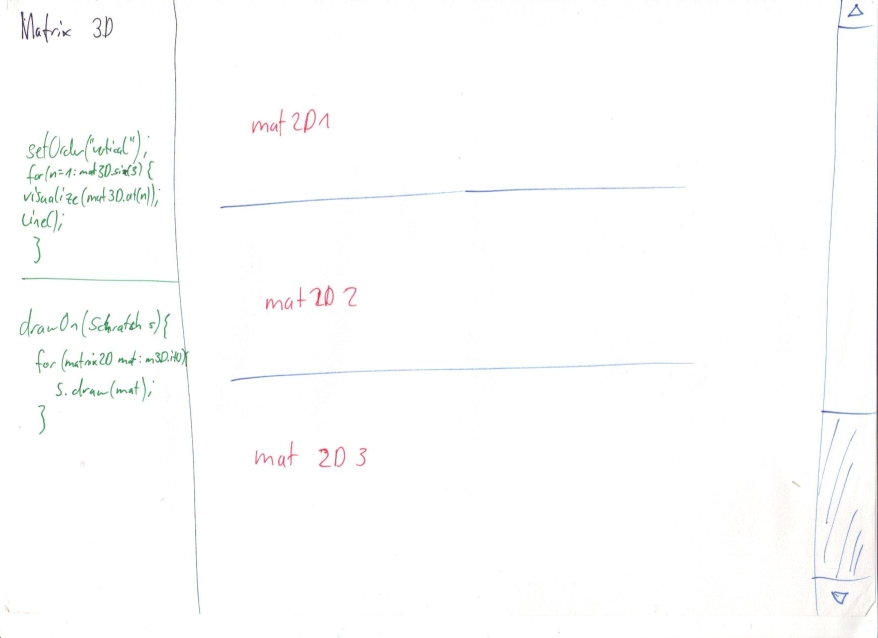 Matrix 3D
setOrder("vertical");
for(n=1:mat3D.size(3) {
visualize(mat3D.at(n));
Line();
}
drawOn(Schratch s){
for (matrix2D mat : m3D.it()){
s.draw(mat);
}
mat 2D1
mat 2D 2
mat 2D 3